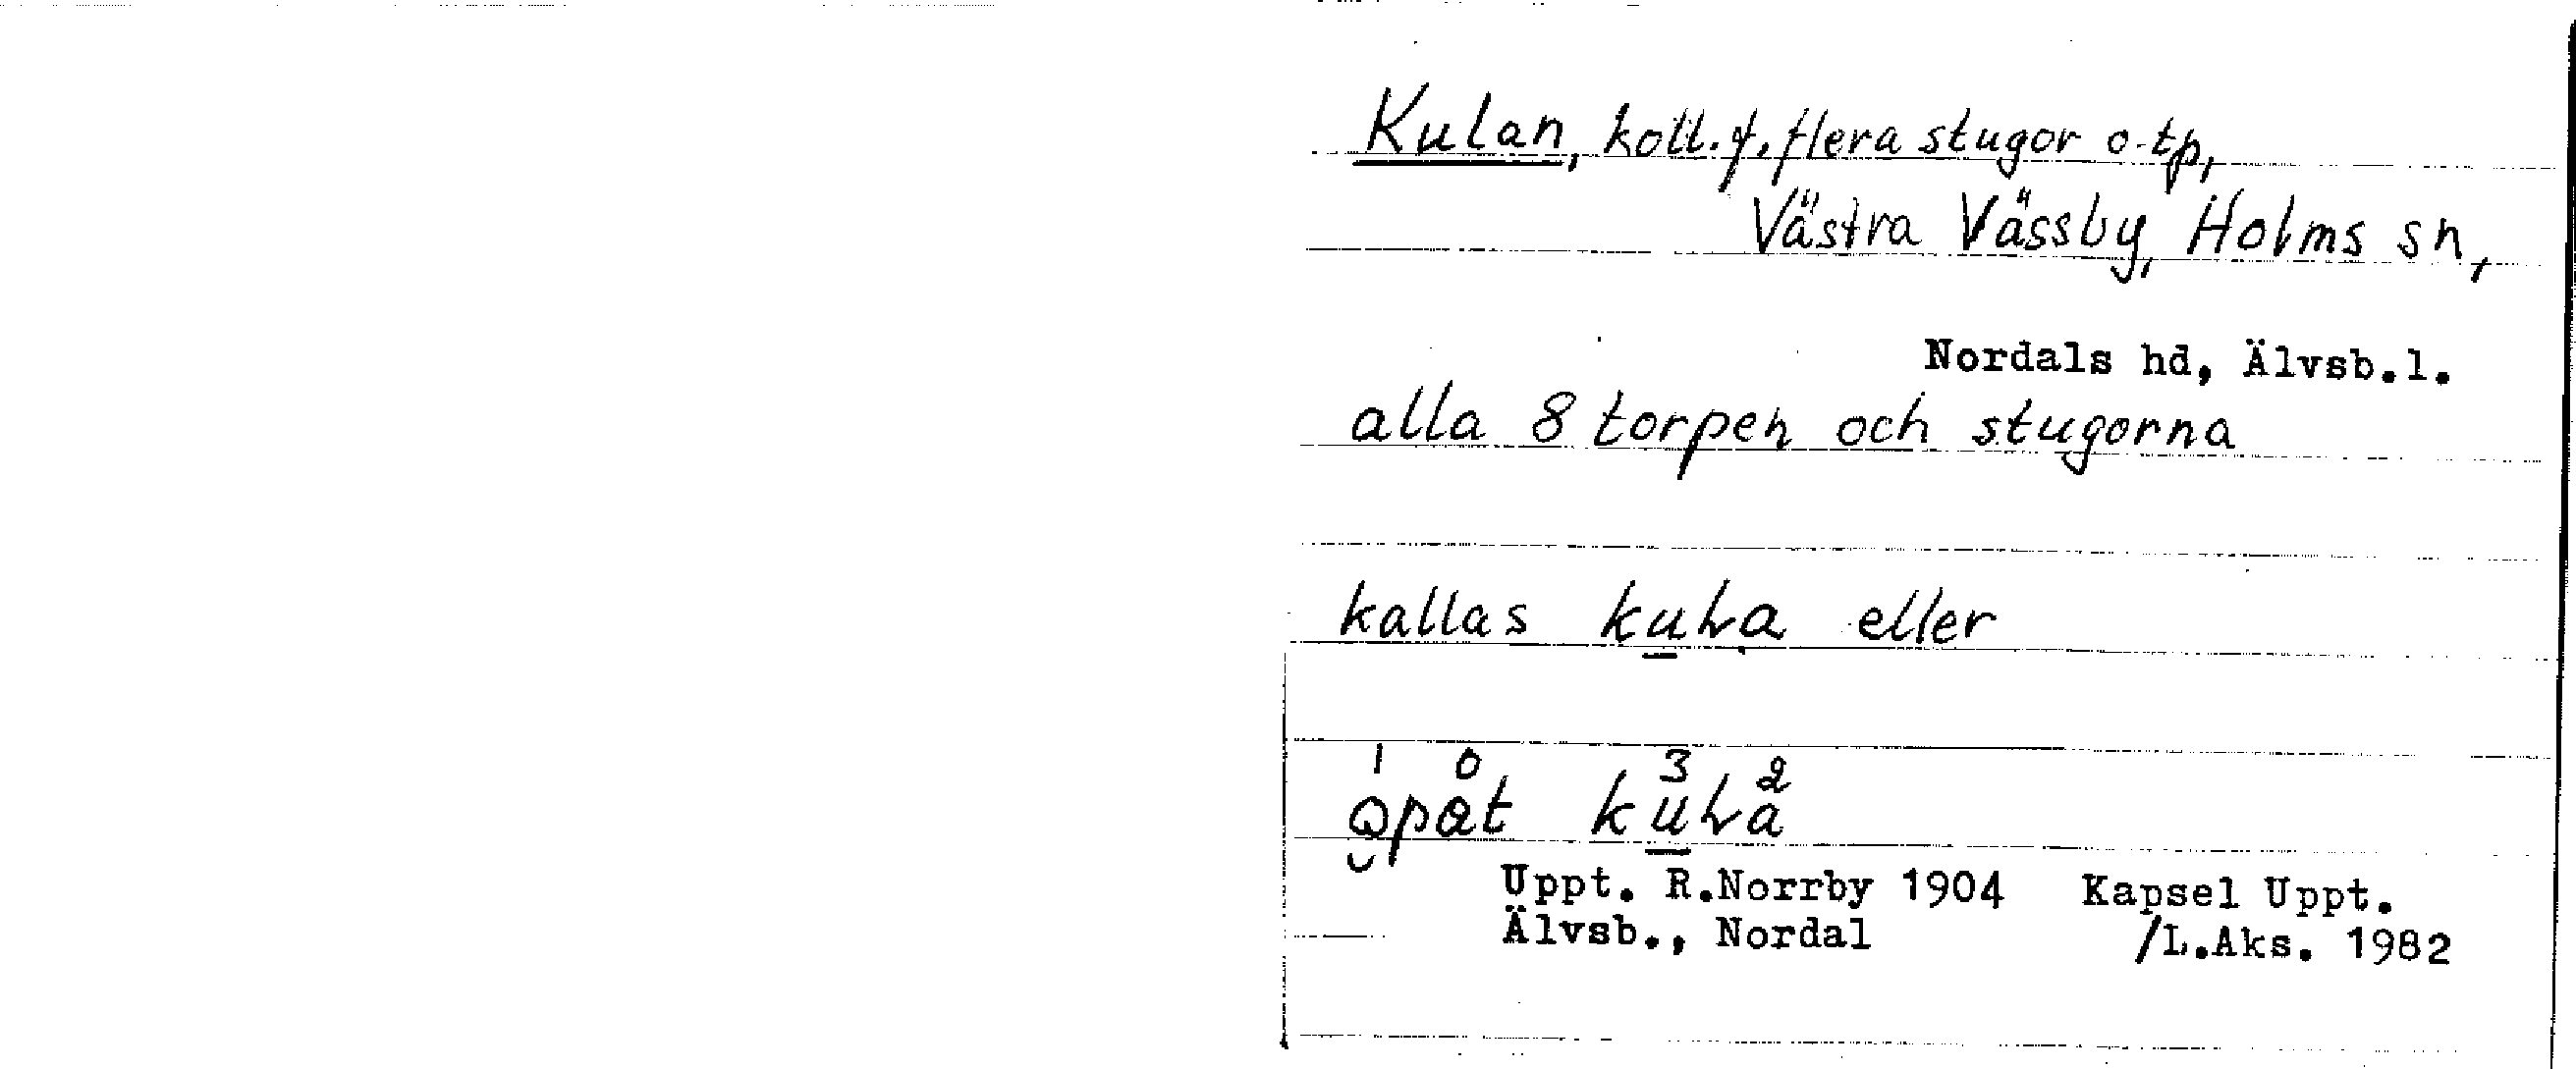 Kulan, koll. f. flera stugor o. tp,
Västra Vässby, Holms sn,
Nordals hd, Älvsb.l.
alla 8 torpen och stugorna
kallas eller
Uppt. R.Norrby 1904 Kapsel Uppt.
Älvsb., Nordal /L.Aks. 1982